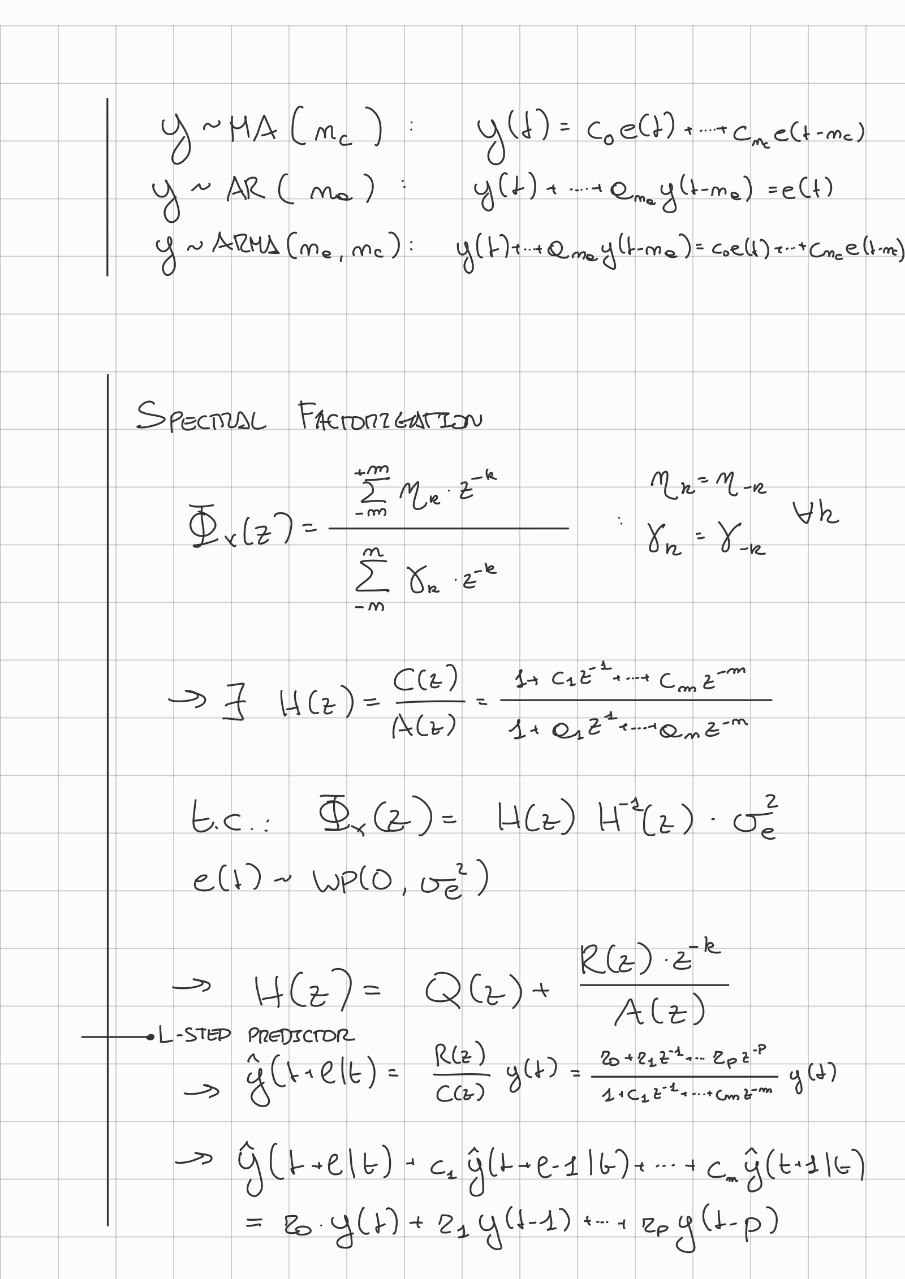 y ~ MA(n_c) : y(t) = c_0 e(t) + ... + c_{n_c} e(t-n_c)
y ~ AR(n_a) : y(t) + ... + a_{n_a} y(t-n_a) = e(t)
y ~ ARMA(n_a, n_c) : y(t) + ... + a_{n_a} y(t-n_a) = c_0 e(t) + ... + c_{n_c} e(t-n_c)
SPECTRAL FACTORIZATION
Φ_x(z) = \frac{\sum_{-m}^{+m} η_k · z^{-k}}{\sum_{-n}^{n} γ_k · z^{-k}} : η_k = η_{-k} γ_k = γ_{-k} ∀k
→ ∃ H(z) = \frac{C(z)}{A(z)} = \frac{1 + c_1 z^{-1} + ... + c_m z^{-m}}{1 + a_1 z^{-1} + ... + a_n z^{-n}}
t.c.: Φ_x(z) = H(z) H^{-1}(z) · σ_e^2
e(t) ~ WP(0, σ_e^2)
→ H(z) = Q(z) + \frac{R(z) · z^{-k}}{A(z)}
L-STEP PREDICTOR
→ ŷ(t+l|t) = \frac{R(z)}{C(z)} y(t) = \frac{r_0 + r_1 z^{-1} + ... r_p z^{-p}}{1 + c_1 z^{-1} + ... + c_m z^{-m}} y(t)
→ ŷ(t+l|t) + c_1 ŷ(t+l-1|t) + ... + c_m ŷ(t+1|t)
= r_0 · y(t) + r_1 y(t-1) + ... + r_p y(t-p)